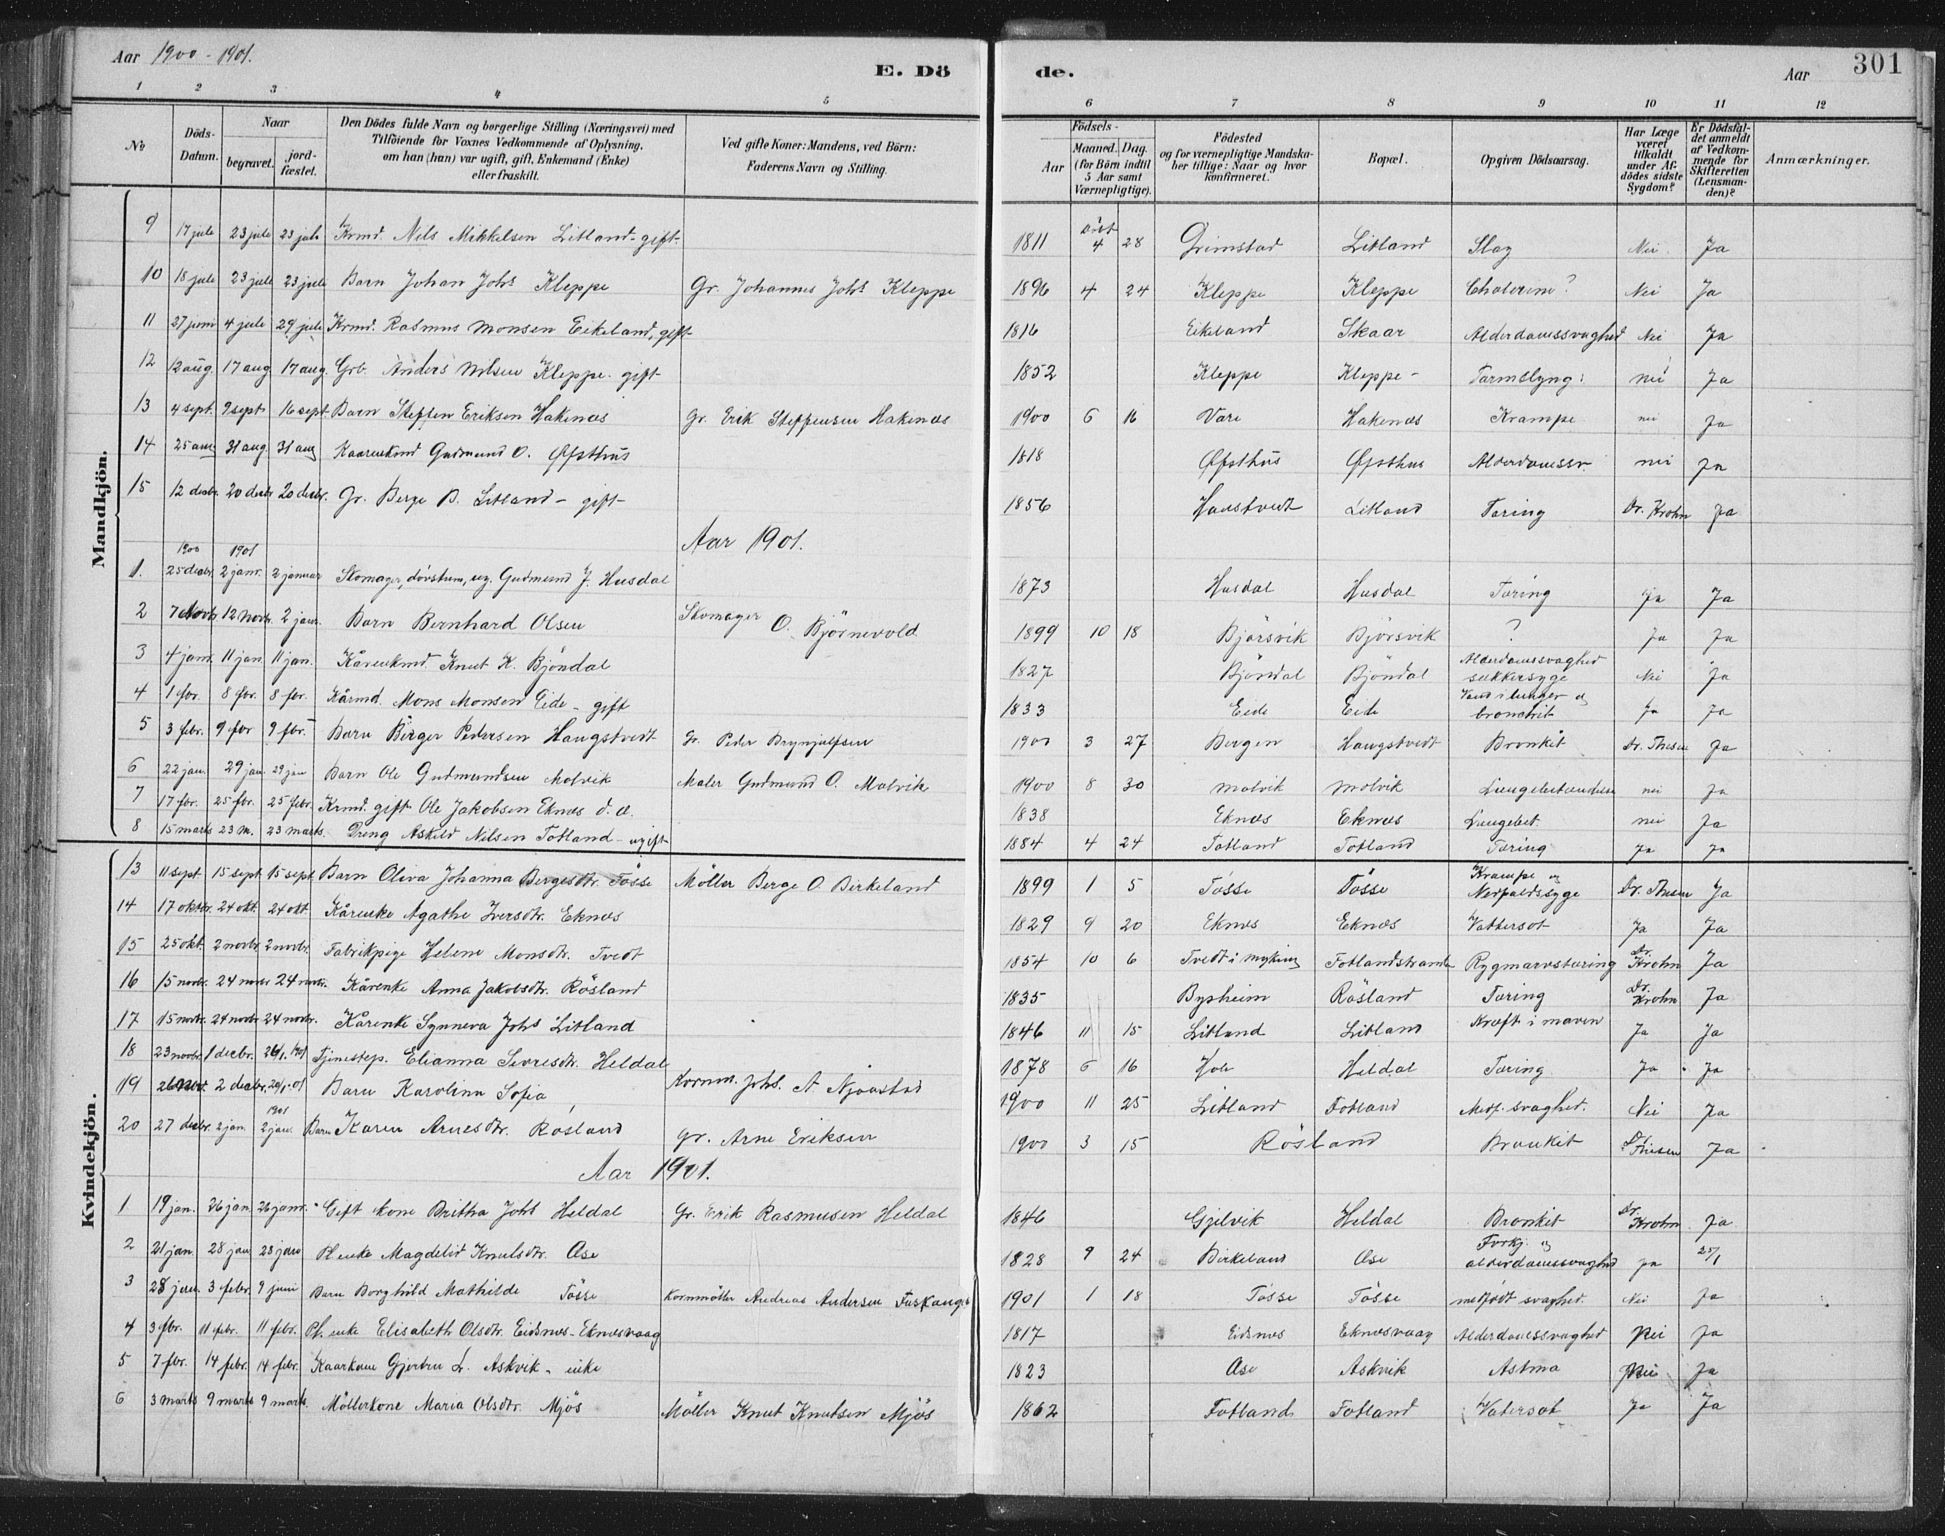 Aar 1900 - 1901.
E. Döde.
Aar 301
1 2 3 4 5 6 7 8 9 10 11 12
№ | Döds-Datum. | Naar begravet. | jordfæstet. | Den Dödes fulde Navn og borgerlige Stilling (Næringsvei) med Tilföiende for Voxnes Vedkommende af Oplysning, om han (hun) var ugift, gift, Enkemand (Enke) eller fraskilt. | Ved gifte Koner: Mandens, ved Börn: Faderens Navn og Stilling. | Födsels- Aar | Maaned. Dag. (for Börn indtil 5 Aar samt Værnepligtige). | Födested og for værnepligtige Mandskaber tillige: Naar og hvor konfirmeret. | Bopæl. | Opgiven Dödsaarsag. | Har Læge været tilkaldt under Afdödes sidste Sygdom? | Er Dödsfaldet anmeldt af Vedkommende for Skifteretten (Lensmanden)? | Anmærkninger.
Mandkjön.
9 17 jule 23 jule 23 jule Krmd. Nels Mikkelsen Litland - gift - 1811 4 28 Grimstad Litland Slag Nei Ja
10 18 jule 23 jule 23 jule Barn Johan Johs Kleppe Gr. Johannes Johs Kleppe 1896 4 24 Kleppe Kleppe Cholerine? Nei Ja
11 27 juni 4 jule 29 jule Krmd. Rasmus Monsen Eikeland, gift 1816 Eikeland Skaar Alderdomssvaghed Nei Ja
12 12 aug. 17 aug 17 aug. Grb. Anders Nilsen Kleppe - gift 1852 Kleppe Kleppe - Tarmslyng: nei Ja
13 4 sept. 9 sept 16 sept. Barn Steffen Eriksen Hakenæs Gr. Erik Steffensen Hakenæs 1900 6 16 Vare Hakenæs Krampe nei Ja
14 25 aug 31 aug 31 aug Kaarenkmd Gudmund O. Øfsthus 1818 Øfsthus Øfsthus Alderdomssv nei Ja
15 12 decbr. 20 decbr 20 decbr. Gr. Berge B. Litland - gift - 1856 Haustvedt Litland Tæring Dr. Krohn Ja
Aar 1901.
1900 1901
1. 25 decbr. 2 janr. 2 januar Skomager, døvstum, ug. Gudmund J. Husdal 1873 Husdal Husdal Tæring Ja Ja
2 7 Novbr. 12 novbr. 2 janr. Barn Bernhard Olsen Skomager O. Bjørnevold 1899 10 18 Bjørsvik Bjørsvik ? Ja Ja
3 4 janr. 11 jan. 11 jan. Kårenkmd Knut K. Bjöndal 1827 Bjöndal Bjöndal Alderdomssvaghed sukkersyge Nei Ja
4 1 fbr. 8 fbr. 8 fbr. Kårmd. Mons Monsen Eide - gift 1833 Eide Eide Vand i lunger og bronchit Ja Ja
5 3 febr. 9 fbr 9 fbr. Barn Birger Pedersen Haugstvedt Gr. Peder Brynjulfsen 1900 3 27 Bergen Haugstvedt Bronkit Dr. Thesen Ja
6 22 jan. 29 jan. 29 jan Barn Ole Gudmundsen Molvik Maler Gudmund O. Molvik 1900 8 30 Molvik Molvik Lungebetændelse nei Ja
7 17 fbr. 25 fbr. 25 febr. Krmd. gift Ole Jakobsen Eknæs d. æ. 1838 Eknæs Eknæs Lungebet. nei Ja
8 15 marts 23 m. 23 marts. Dreng Askild Nilsen Totland - ugift 1884 4 24 Totland Totland Tæring Ja Ja
Kvindekjön.
13 11 sept 15 sept 15 sept Barn Oliva Johanna Bergesdtr. Tösse Möller Berge O. Birkeland 1899 1 5 Tösse Tösse Krampe og Nedfaldssyge Dr. Thesen Ja
14 17 oktbr. 24 okt. 24 okt. Kårenke Agathe Iversdtr. Eknæs 1829 9 20 Eknæs Eknæs Vattersot Ja Ja
15 25 okt. 2 novbr. 2 novbr. Fabrikpige Helene Monsdtr. Tvedt 1854 10 6 Tvedt i Myking Totlandstranden Rygmarvstæring Dr. Krohn Ja
16 15 novbr. 24 novbr 24 novbr. Kårenke Anna Jakobsdtr. Rösland 1835 Bysheim Rösland Tæring Dr. Krohn Ja
17 15 novbr. 24 novbr 24 novbr. Kårenke Synneva Johs Litland 1846 11 15 Litland Litland Kræft i maven Ja Ja
18 23 novbr. 1 decbr. 26/1. 1901 Tjenestep. Elianna Seversdtr. Heldal 1878 6 16 Hole Heldal Tæring Ja Ja
19 26 novbr. 2 decbr. 20/1-01 Barn Karolina Sofia Kornm. Johs. A. Njaastad 1900 11 25 Litland Totland Medf. svaghed. Nei Ja
1901
20 27 decbr. 2 jan. 2 jan. Barn Karen Arnesdtr. Rösland Gr. Arne Eriksen 1900 3 15 Rösland Bronkit Dr. Thesen Ja
Aar 1901.
1 19 jan. 26 jan. 26 janr. Gift kone Britha Johs Heldal Gr. Erik Rasmusen Heldal 1846 Gjelvik Heldal Bronkit Dr. Krohn Ja
2 21 jan. 28 jan 23 juni Pl. enke Magdeli Knutsdtr. Ase 1828 9 24 Birkeland Ase Forkj. og alderdomssvaghed Ja 25/1
3 28 janr. 3 febr. 9 juni Barn Borghild Mathilde Tösse Kornmöller Andreas Andersen Fuskanger 1901 1 18 Tösse Tösse medfødt svaghed. Nei Ja
4 3 fbr. 11 febr. 11 febr. Pl. enke Elisabeth Olsdtr. Eidsnes - Eknæsvaag 1817 Eidsnes Eknæsvaag Alderdomssvaghed Nei Ja
5 7 fbr. 14 febr. 14 febr. Kaarkone Gjertru L. Askvik - enke 1823 Ase Askvik Astma Nei Ja
6 3 marts 9 marts 9 marts. Möllerkone Maria Olsdtr. Mjös Möller Knut Knutsen Mjös 1862 Totland Totland Vatersot Ja Ja